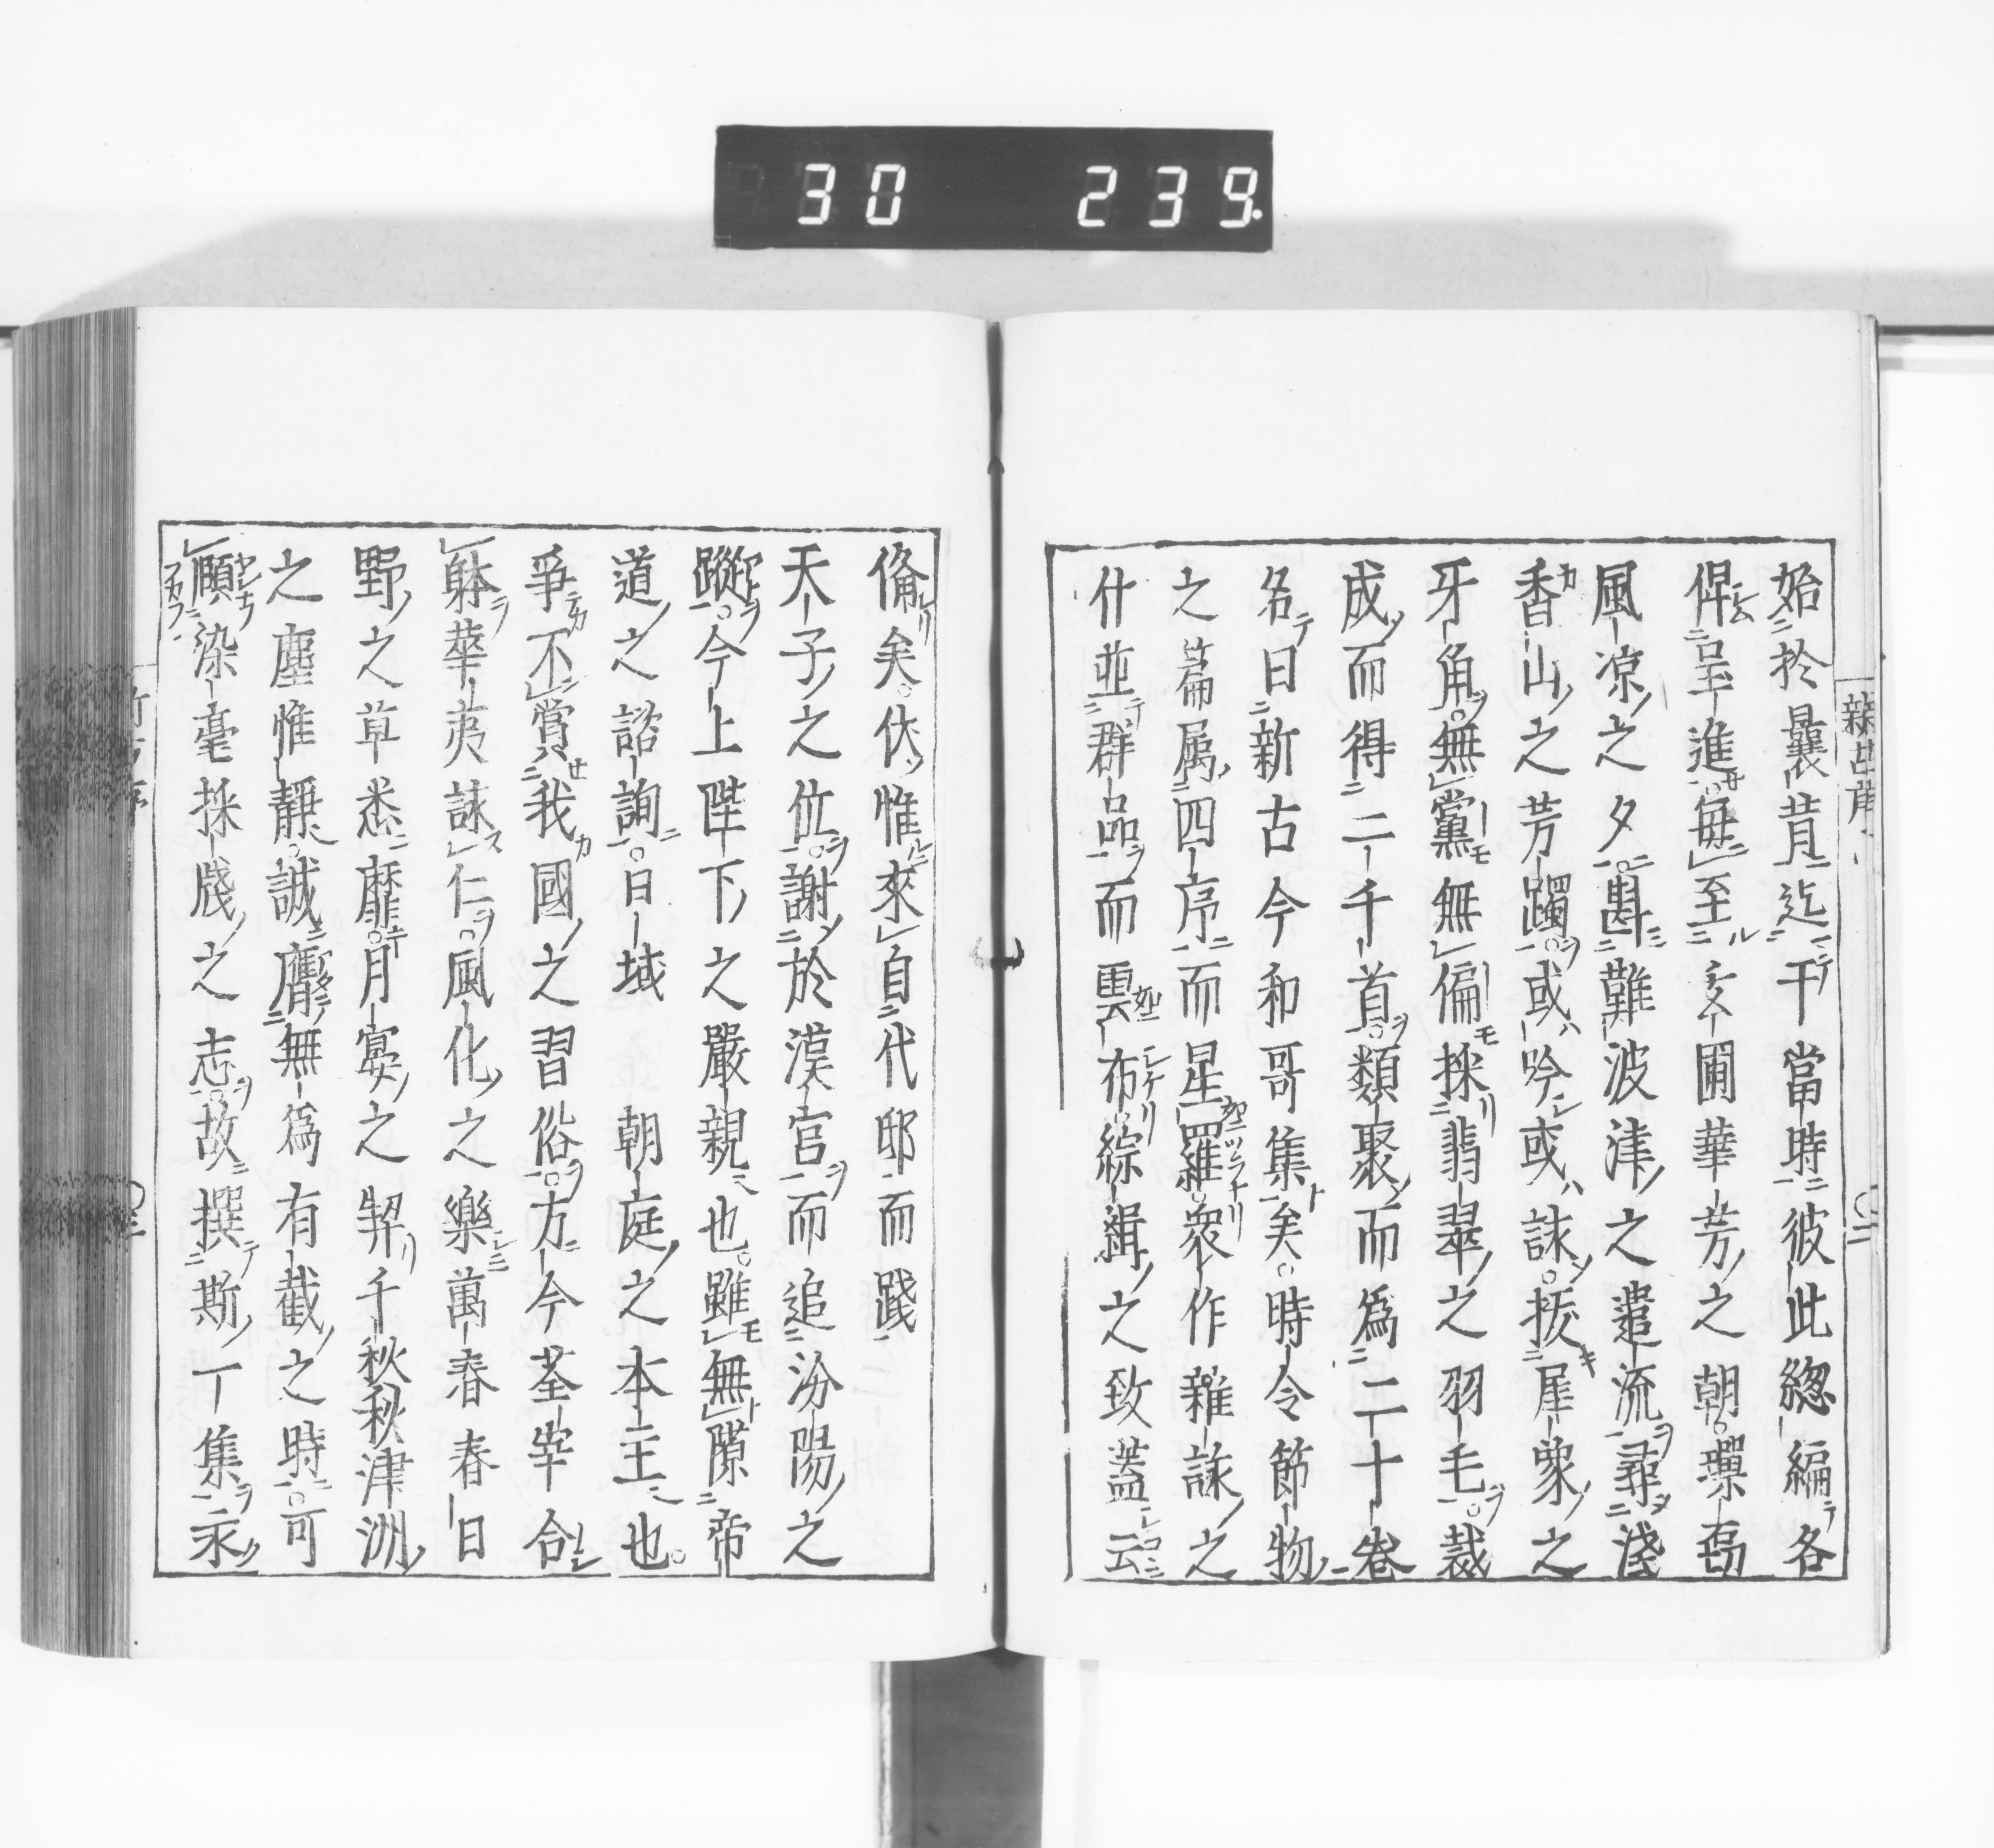 30 239.
始於曩昔迄于當時彼此緫編各
俾呈進毎至玄圃華芳之朝璅砌
風凉之夕斟難波津之遣流尋淺
香山之芳躅或吟或詠拔犀象之
牙角無黨無偏採翡翠之羽毛裁
成而得二千首類聚而爲二十巻
名曰新古今和哥集矣時令節物
之篇属四序而星羅衆作雜詠之
什並群品而雲布綜緝之致蓋云
偹矣伏惟來自代邸而踐
天子之位謝於漢宮而追汾陽之
蹤今上陛下之嚴親也雖無隙帝
道之諮詢日域朝庭之本主也
爭不賞我國之習俗方今荃宰合
躰華夷詠仁風化之樂萬春春日
野之草悉靡月宴之契千秋秋津洲
之塵惟静誠膺無爲有截之時可
頤染毫採牋之志故撰斯一集永